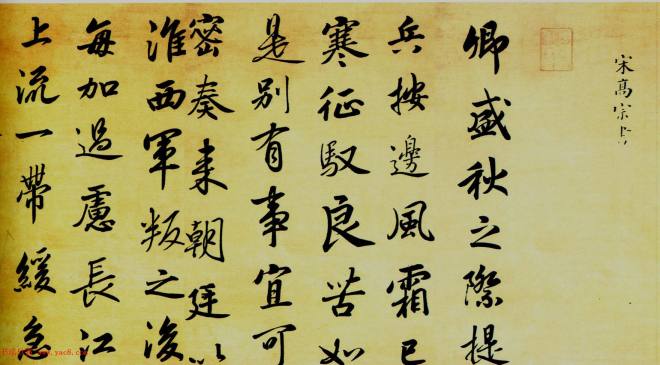 宋高宗书
卿盛秋之際提
兵按邊風霜已
寒征馭良苦如
是別有事宜可
密奏来朝廷以
淮西軍叛之後
每加過慮長江
上流一帶緩急